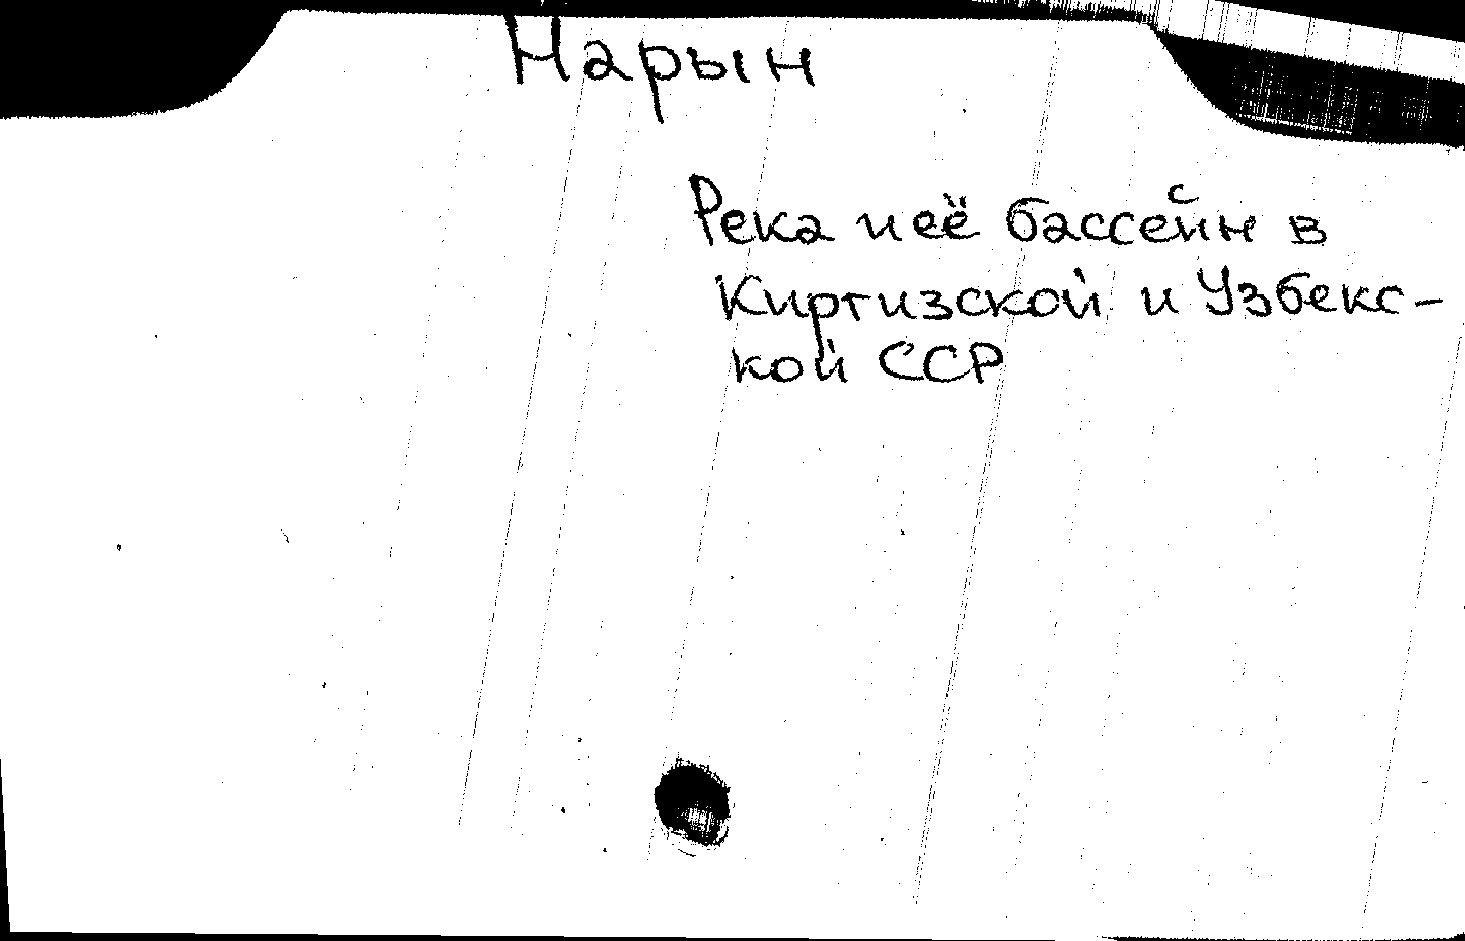 Нарын
Река и её бассейн в
Киргизской и Узбекс-
кой ССР